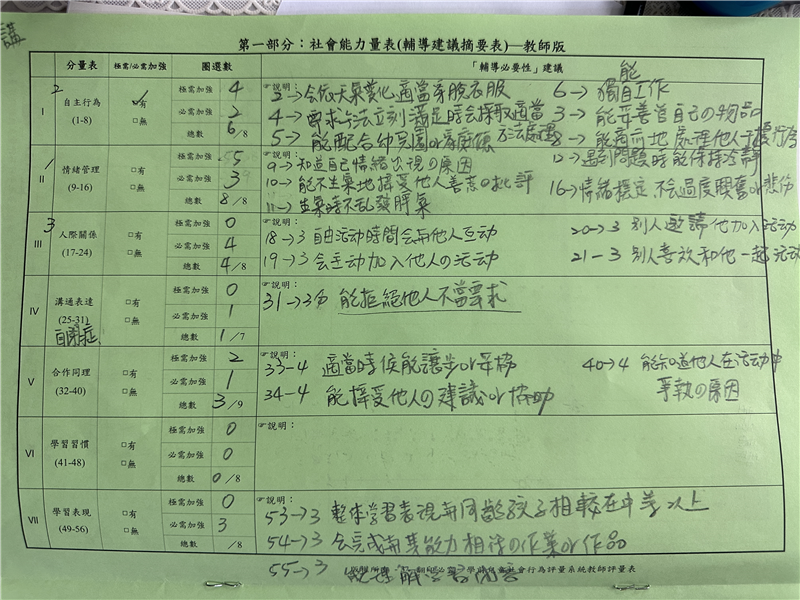 第一部分：社會能力量表(輔導建議摘要表)—教師版
分量表 極需/必需加強 圈選數 「輔導必要性」建議
2
I 自主行為 (1-8) ☑有 □無
極需加強 4
必需加強 2
總數 6/8
☞說明：
2→會依天氣變化適當穿脫衣服
4→要求無法立刻滿足時會採取適當方法處理
5→能配合幼兒園or家庭
6→能獨自工作
3→能妥善管自己の物品
8→能適當地處理他人干擾行為
1
II 情緒管理 (9-16) □有 □無
極需加強 5
必需加強 3
總數 8/8
☞說明：
9→知道自己情緒出現の原因
10→能不生氣地接受他人善意の批評
11→生氣時不乱發脾氣
12→遇到問題時能保持冷靜
16→情緒穩定,不會過度興奮or悲傷
3
III 人際關係 (17-24) □有 □無
極需加強 0
必需加強 4
總數 4/8
☞說明：
18→3 自由活动時間会与他人互动
19→3 会主动加入他人の活动
20→3 別人邀請他加入活动
21-3 別人喜歡和他一起活动
IV 溝通表達 (25-31) □有 □無
自閉症
極需加強 0
必需加強 1
總數 1/7
☞說明：
31→3分 能拒絕他人不當要求
V 合作同理 (32-40) □有 □無
極需加強 2
必需加強 1
總數 3/9
☞說明：
33-4 適當時侯能讓步or妥協
34-4 能接受他人の建議or協助
40→4 能知道他人在活动中
爭執の原因
VI 學習習慣 (41-48) □有 □無
極需加強 0
必需加強 0
總數 0/8
☞說明：
VII 學習表現 (49-56) □有 □無
極需加強 0
必需加強 3
總數 /8
☞說明：
53→3 整体学習表現与同齡孩子相較在中等以上
54→3 会完成与其能力相符の作業or作品
55→3 能理解学習內容
社會行為評量系統教師評量表